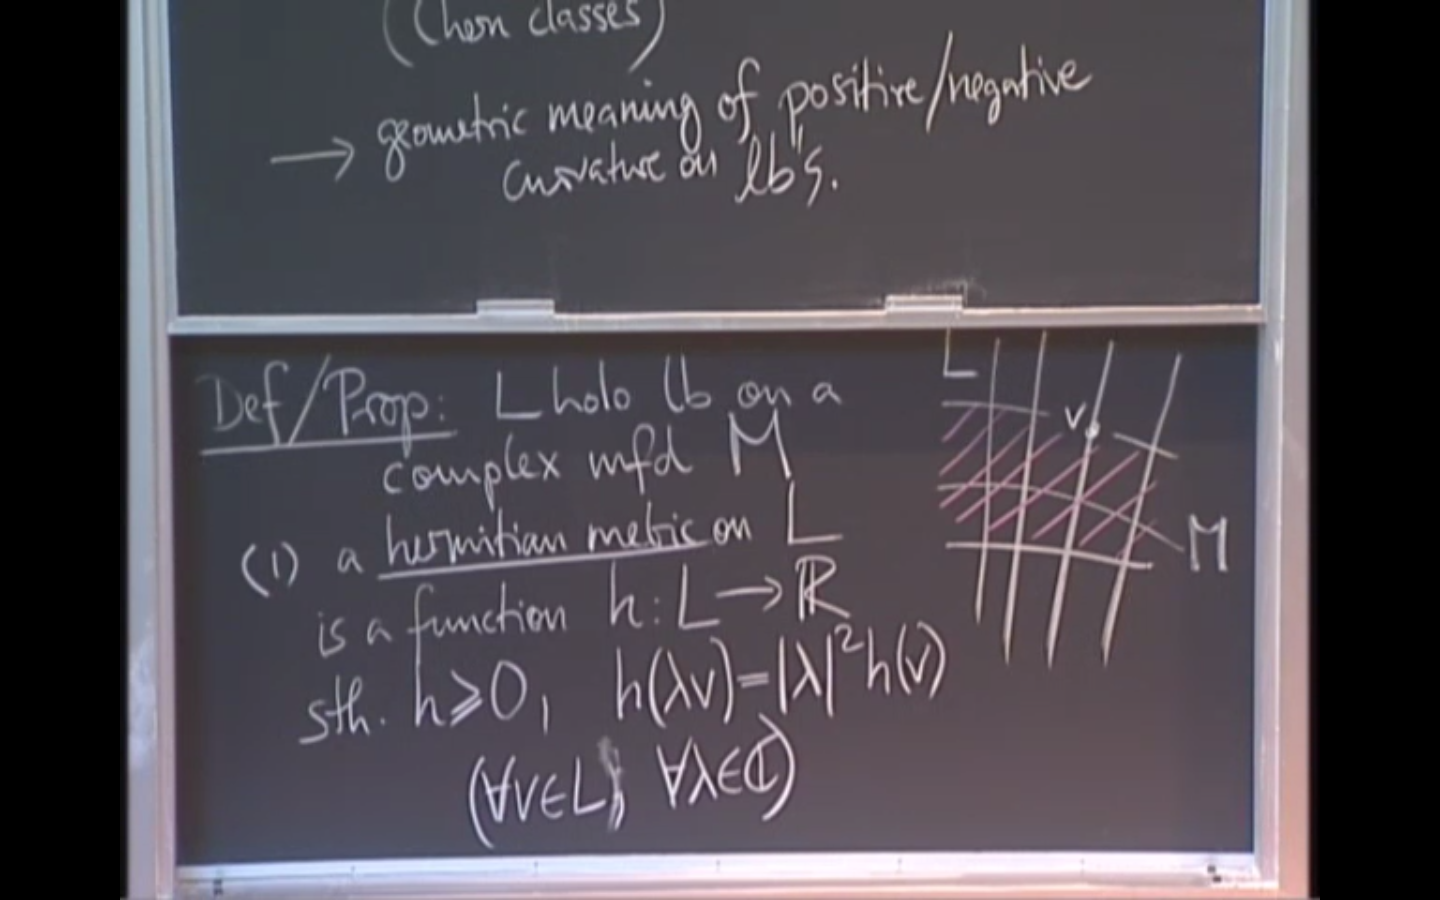 (Chern classes)
→ geometric meaning of positive/negative
curvature on lb's.
Def/Prop: L holo lb on a
complex mfd M
(1) a hermitian metric on L
is a function h: L → ℝ
sth. h ⩾ 0, h(λv)=|λ|²h(v)
(∀v∈L, ∀λ∈ℂ)
L
v
M